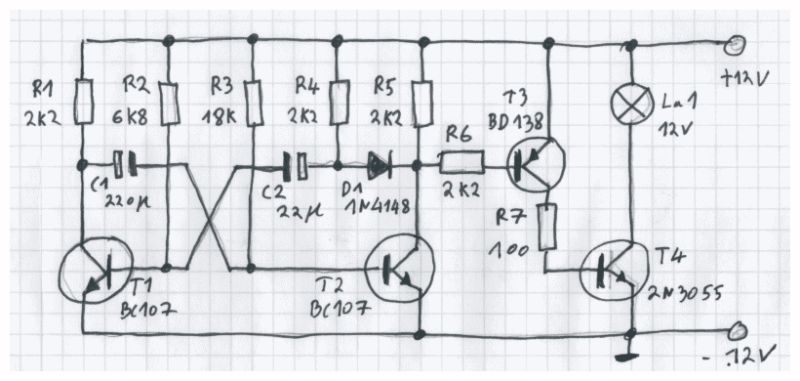 R1
2K2
R2
6K8
R3
18K
R4
2K2
R5
2K2
T3
BD138
La1
12V
+12V
R6
2K2
C1
220µ
C2
22µ
D1
1N4148
R7
100
T1
BC107
T2
BC107
T4
2N3055
- 12V